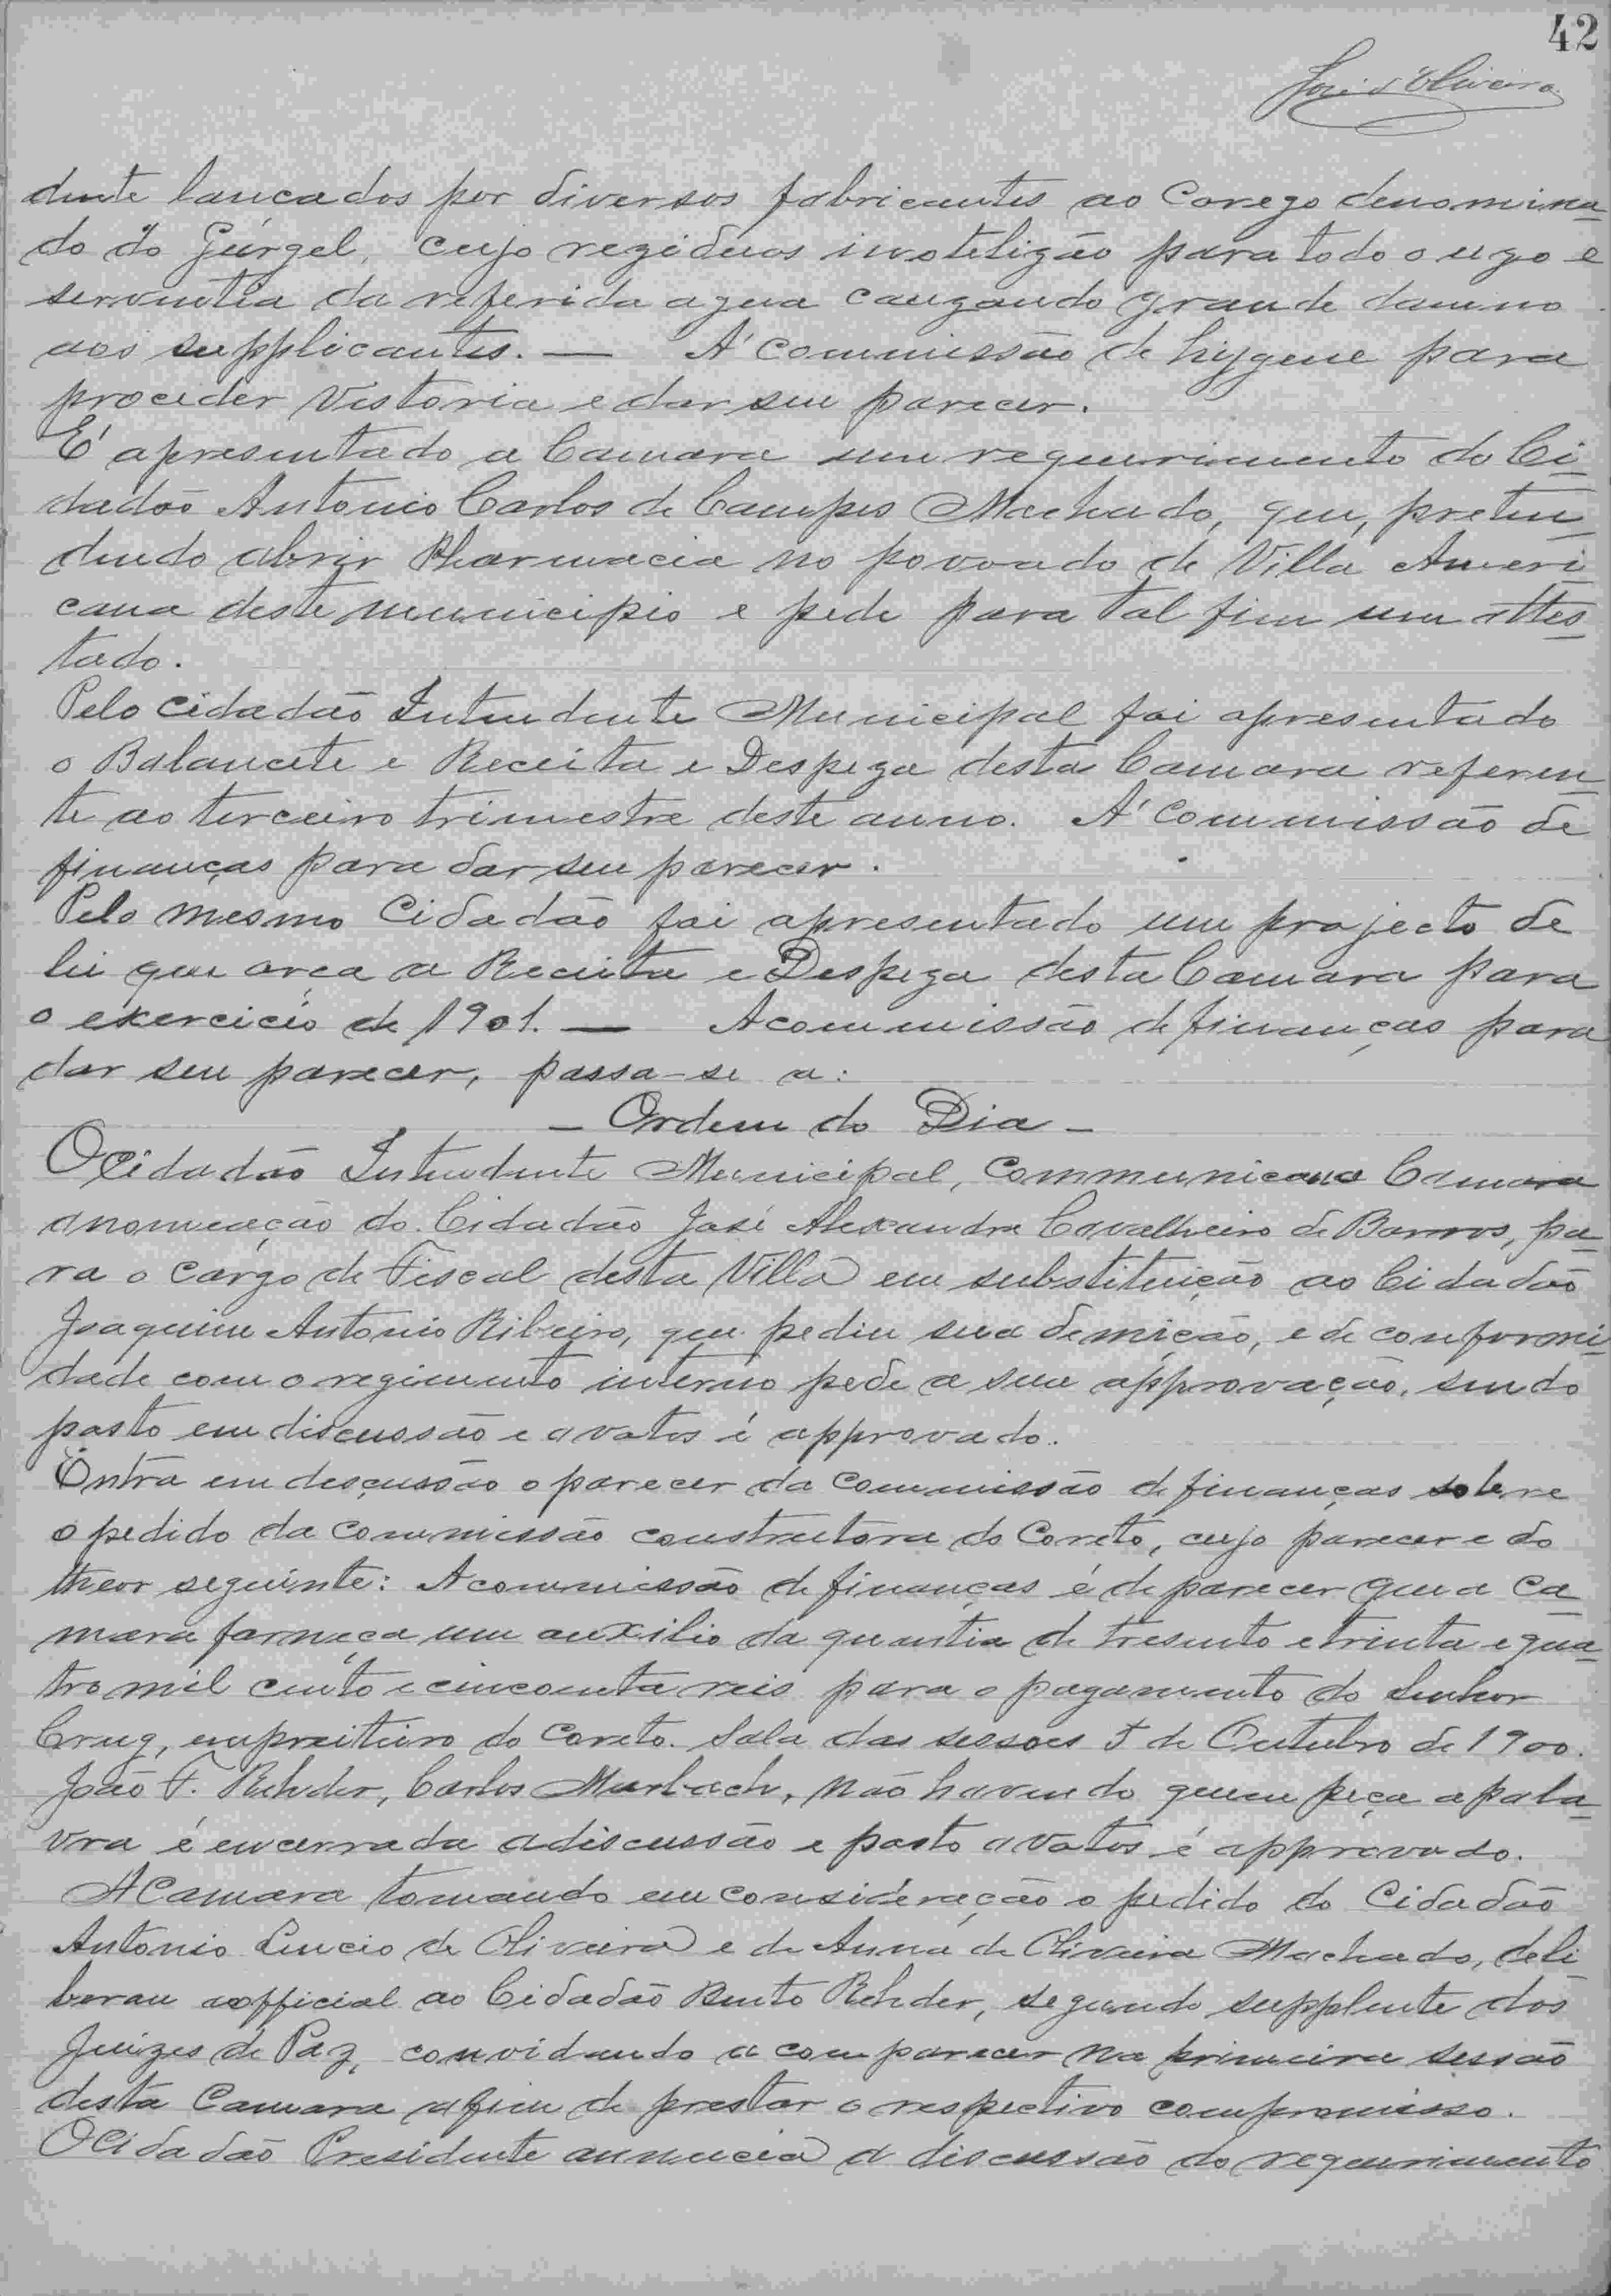 42
José d'Oliveira
dente lançados por diversos fabricantes ao Corego denomina-
do do Gúrgel, cujo regiduos inoteligão para todo o ugo e
serventia da referida agua caugando grande damno
aos supplicantes. — A' Commissão de hygene para
proceder vistoria e dar seu parecer.
E' apresentado a Camara um requerimento do Ci-
dadão Antonio Carlos de Campos Machado, que, preten-
dendo abrir Pharmacia no povoado de Villa Ameri-
cana deste municipio e pede para tal fim um attes-
tado.
Pelo Cidadão Intendente Municipal foi apresentado
o Balancete e Receita e Despeza desta Camara referen-
te ao terceiro trimestre deste anno. A' Commissão de
finanças para dar seu parecer.
Pelo mesmo Cidadão foi apresentado um projecto de
lei que orça a Receita e Despeza desta Camara para
o exercicio de 1901. — A commissão de finanças para
dar seu parecer, passa-se a:
— Ordem do Dia —
O Cidadão Intendente Municipal, communica a Camara
a nomeação do Cidadão José Alexandre Cavalheiro de Barros, pa-
ra o cargo de Fiscal desta Villa em substituição ao Cidadão
Joaquim Antonio Ribeiro, que pediu sua demição, e de conformi-
dade com o regimento interno pede a sua approvação, sendo
posto em discussão e a votos é approvado.
Entra em descussão o parecer da Commissão de finanças sobre
o pedido da Commissão constructora do Coreto, cujo parecer e do
theor seguinte: A commissão de finanças é de parecer que a Ca-
mara forneça um auxilio da quantia de tresento e trinta e qua-
tro mil cento e cincoenta reis para o pagamento do Senhor
Crug, empreiteiro do Coreto. Sala das sessoes 5 de Outubro de 1900.
João F. Rehder, Carlos Murbach, não havendo quem peça a pala-
vra é encerrada a discussão e posto a votos é approvado.
A Camara tomando em consideração o pedido do Cidadão
Antonio Lucio de Oliveira e de Anna de Oliveira Machado, deli
berau aofficial ao Cidadão Bento Rehder, segundo supplente dos
Juizes de Paz, convidando a comparecer na primeira sessão
desta Camara a fim de prestar o respectivo compromisso.
O Cidadão Presidente annuncia a discussão do requerimento